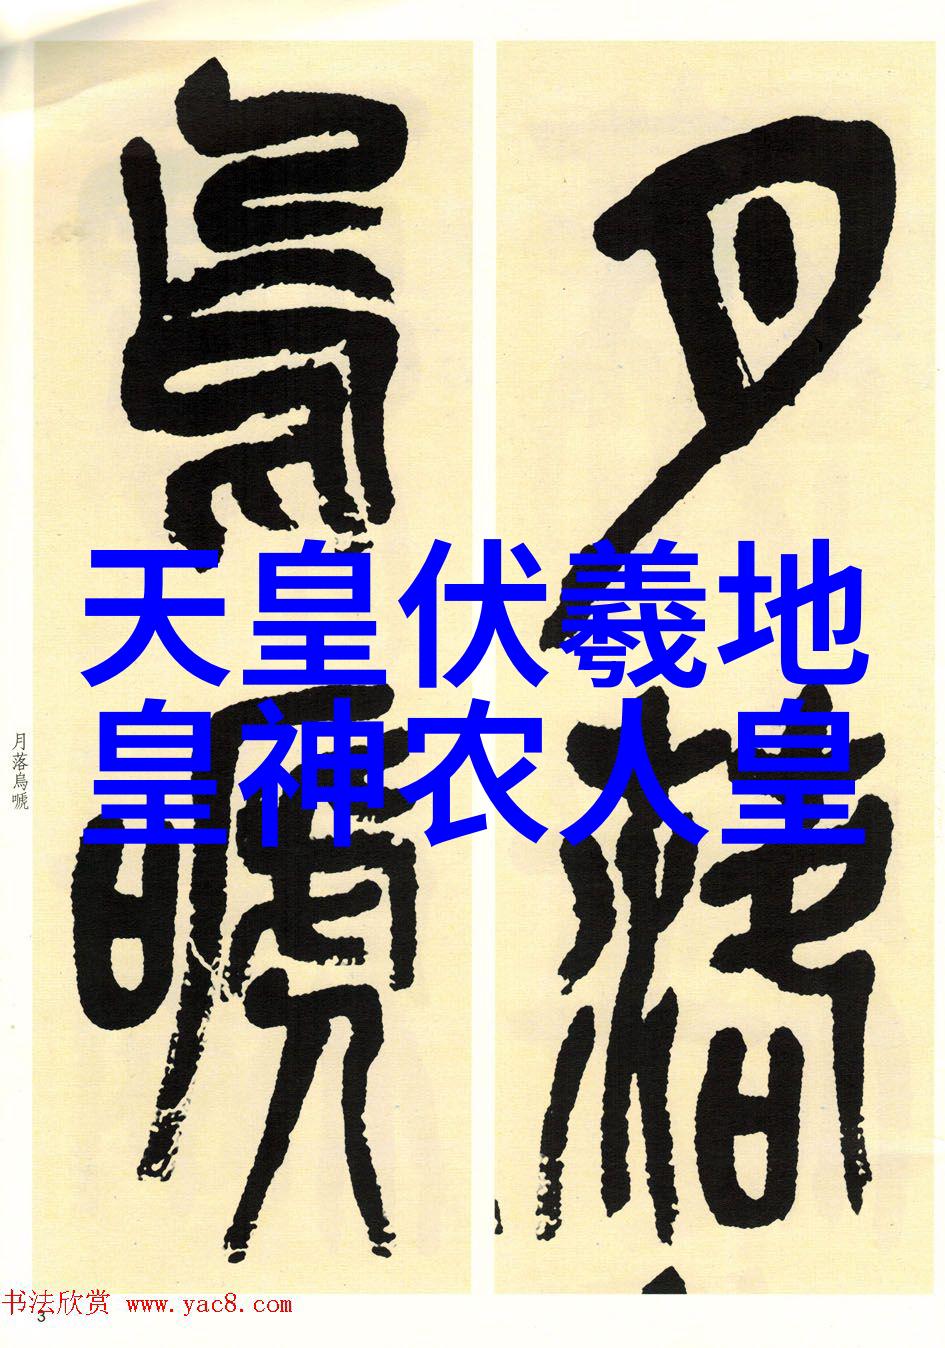 月落
烏嗁
天皇伏羲地
皇神农人皇
月落烏嗁
书法欣赏 www.yac8.com
3